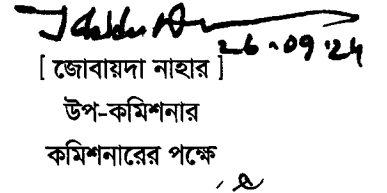 26-09-24
[ জোবায়দা নাহার ]
উপ-কমিশনার
কমিশনারের পক্ষে